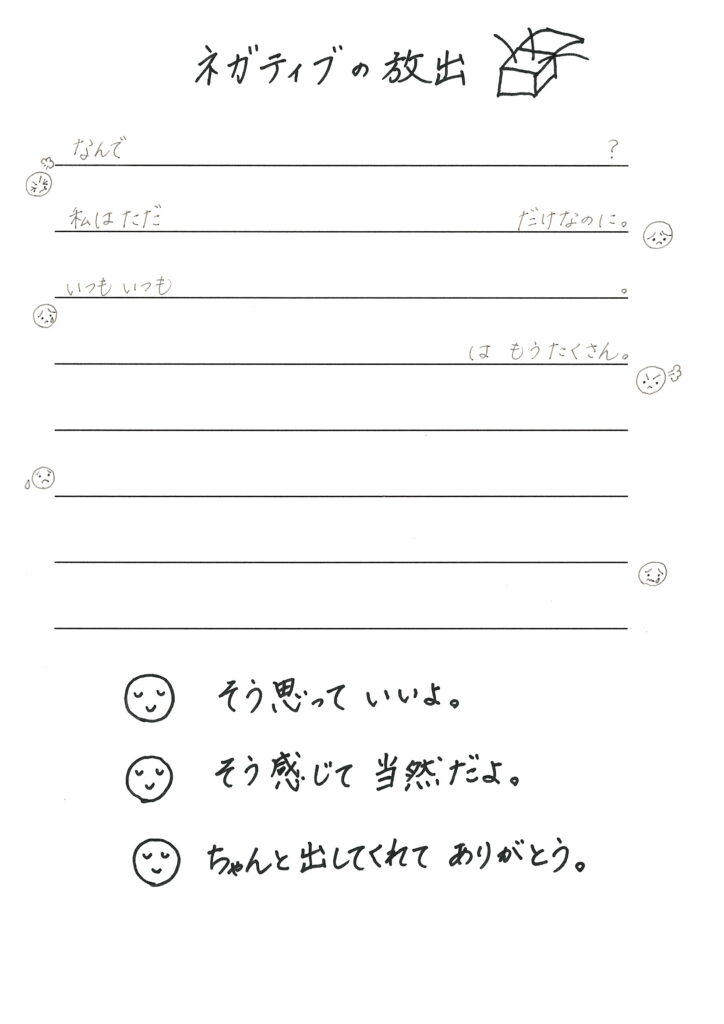 ネガティブの放出
なんで ?
私はただ だけなのに。
いつもいつも 。
は もうたくさん。
そう思って いいよ。
そう感じて 当然だよ。
ちゃんと出してくれて ありがとう。